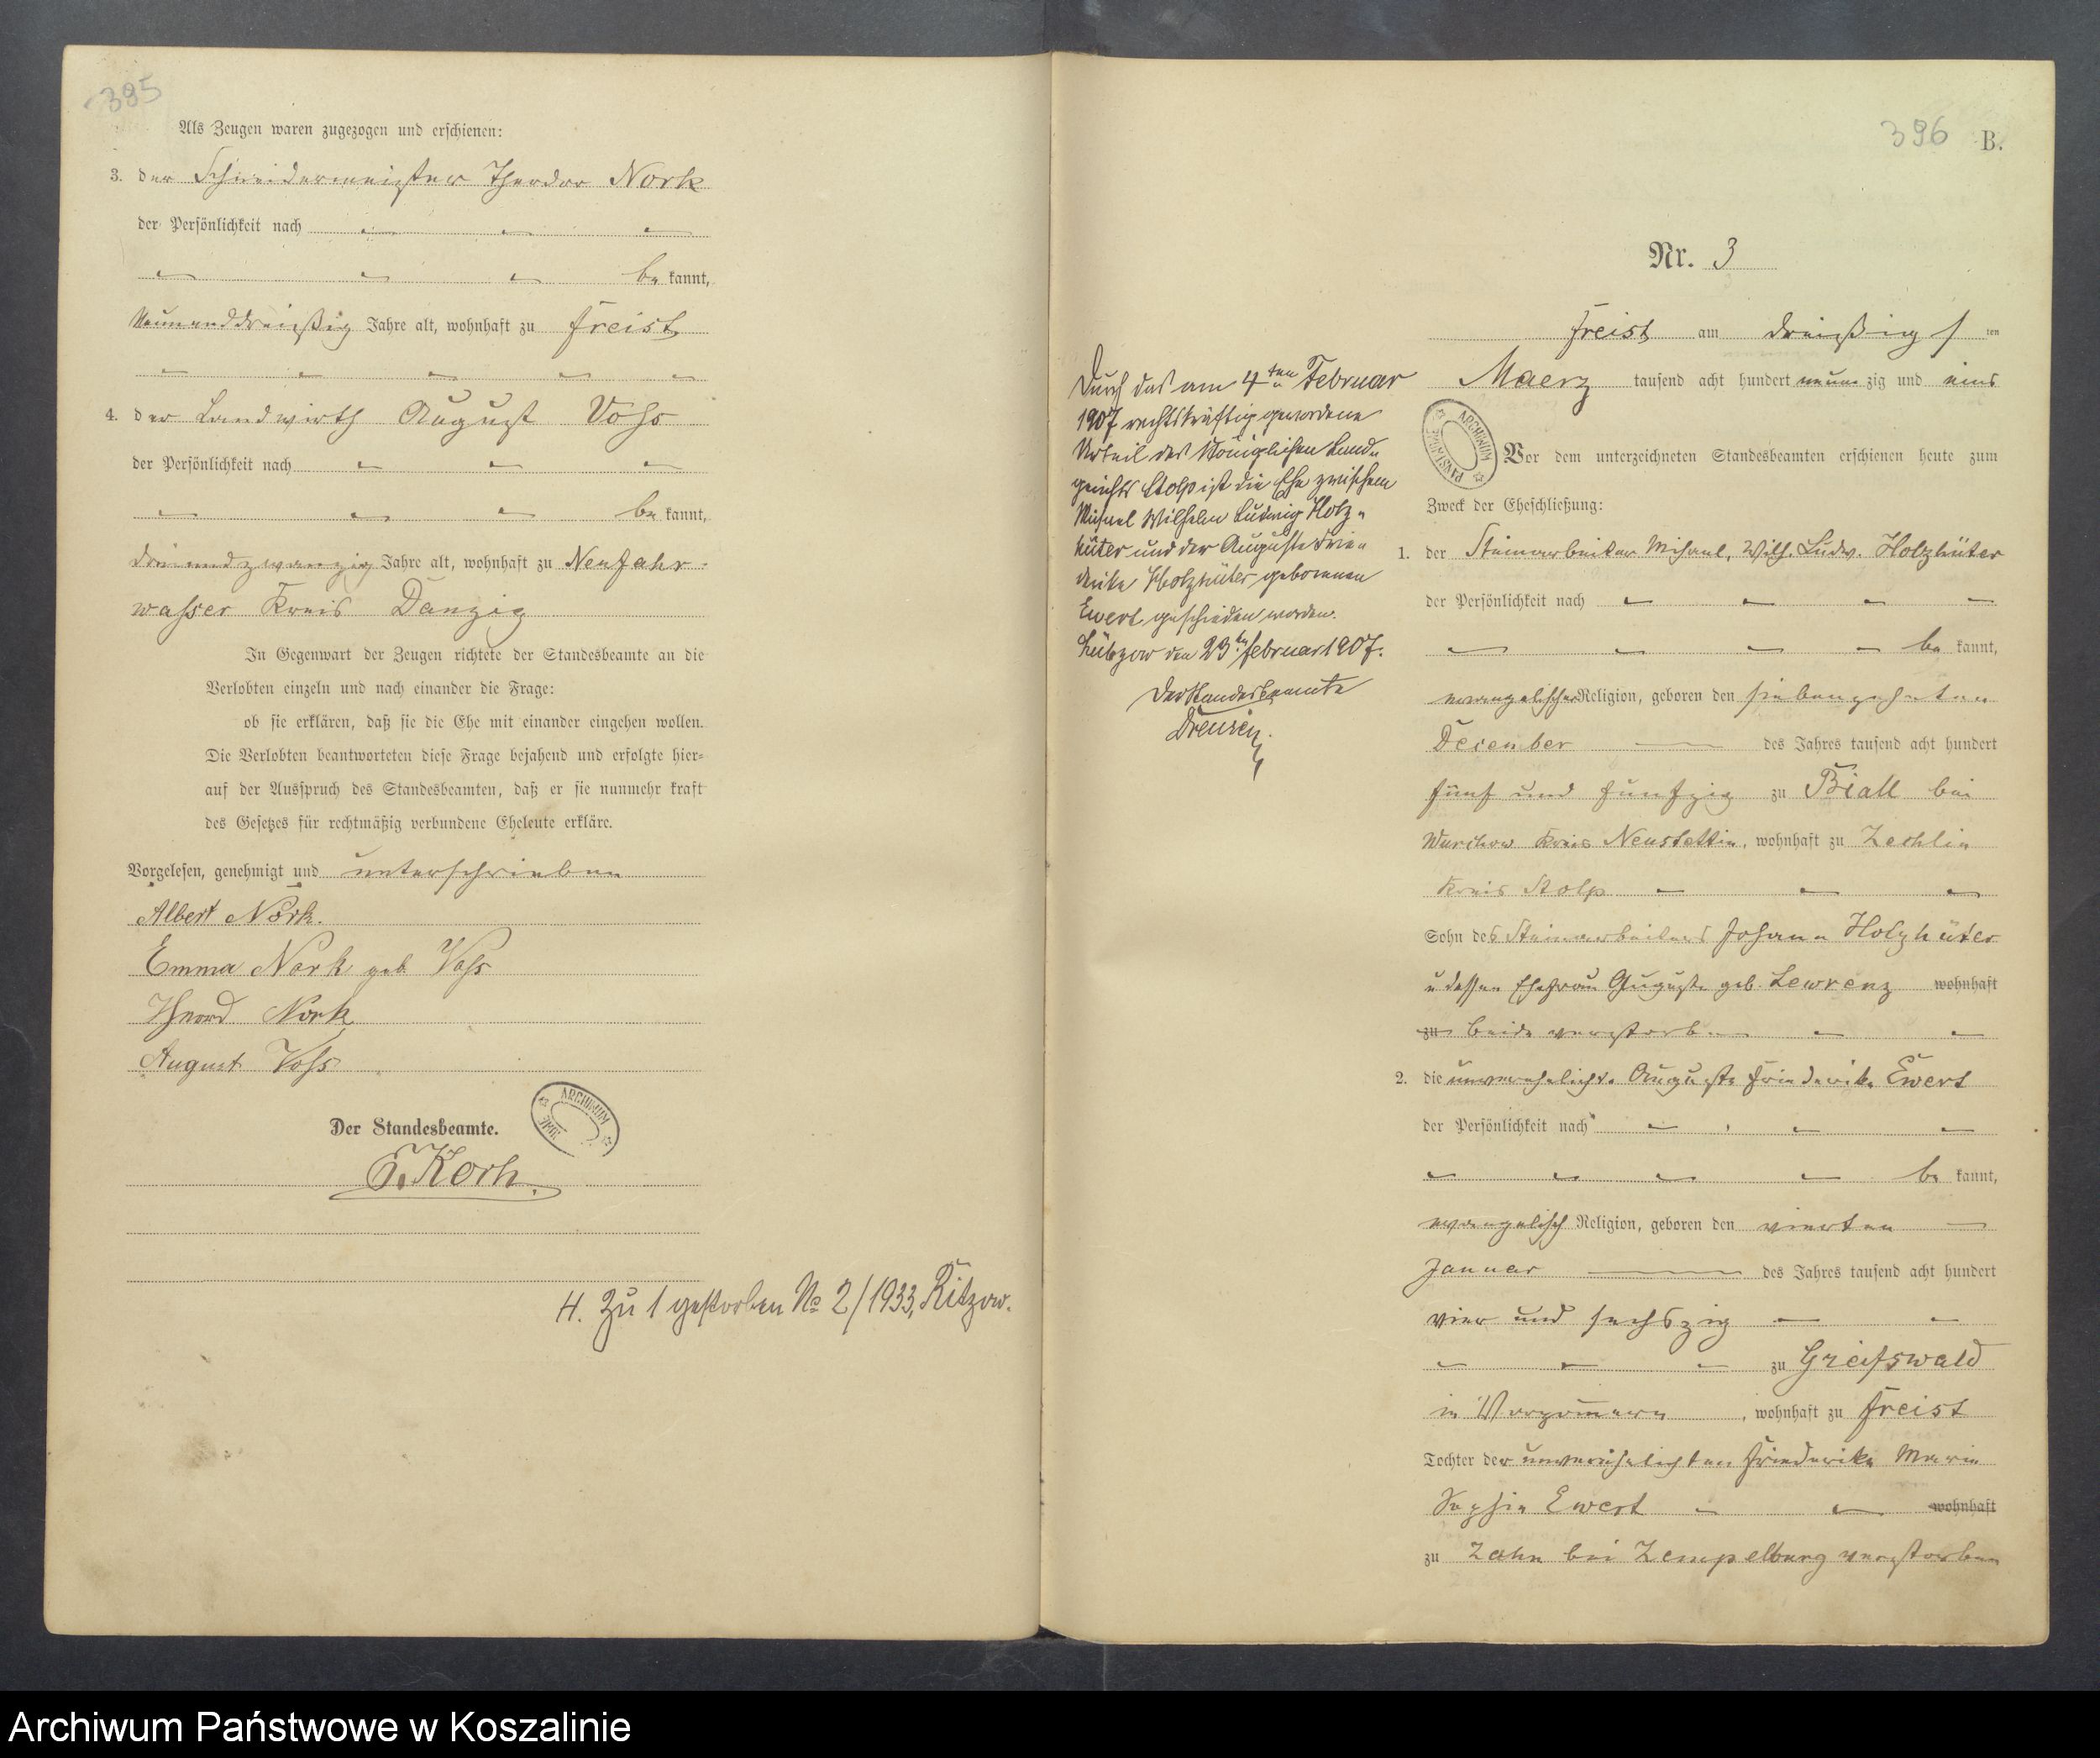 395
Als Zeugen waren zugezogen und erschienen:
3. der Schneidermeister Theodor Nork
der Persönlichkeit nach
be kannt,
Neununddreißig Jahre alt, wohnhaft zu Freist
4. der Landwirth August Voss
der Persönlichkeit nach
be kannt,
dreiundzwanzig Jahre alt, wohnhaft zu Neufahr-
wasser Kreis Danzig
In Gegenwart der Zeugen richtete der Standesbeamte an die
Verlobten einzeln und nach einander die Frage:
ob sie erklären, daß sie die Ehe mit einander eingehen wollen.
Die Verlobten beantworteten diese Frage bejahend und erfolgte hier-
auf der Ausspruch des Standesbeamten, daß er sie nunmehr kraft
des Gesetzes für rechtmäßig verbundene Eheleute erkläre.
Vorgelesen, genehmigt und unterschrieben
Albert Nork.
Emma Nork geb. Voss
Theord Nork
August Voss
ARCHIWUM
Der Standesbeamte.
Korth.
H. Zu 1 gestorben No 2/1933, Ritzow.
396 B.
Nr. 3
Freist am dreißigsten
Maerz tausend acht hundert neunzig und eins
ARCHIWUM PAŃSTWOWE
Vor dem unterzeichneten Standesbeamten erschienen heute zum
Zweck der Eheschließung:
1. der Steinarbeiter Michael, Wilh. Ludw. Holzhüter
der Persönlichkeit nach
be kannt,
evangelischer Religion, geboren den siebenzehnten
Dezember des Jahres tausend acht hundert
fünf und fünfzig zu Biall bei
Wurchow Kreis Neustettin, wohnhaft zu Zechlin
Kreis Stolp
Sohn des Steinarbeiters Johann Holzhüter
u dessen Ehefrau Auguste geb. Lewrenz wohnhaft
zu beide verstorben
2. die unverehelichte Auguste Friederike Ewert
der Persönlichkeit nach
be kannt,
evangelisch Religion, geboren den vierten
Januar des Jahres tausend acht hundert
vier und sechszig
zu Greifswald
in Vorpommern, wohnhaft zu Freist
Tochter der unverehelichten Friederike Marie
Sophie Ewert wohnhaft
zu Zahn bei Zempelburg verstorben
Durch das am 4ten Februar
1907 rechtskräftig gewordene
Urteil des Königlichen Land-
gerichts Stolp ist die Ehe zwischen
Michael Wilhelm Ludwig Holz-
hüter und der Auguste Frie-
derike Holzhüter geborenen
Ewert geschieden worden.
Lübzow den 23ten Februar 1907.
Der Standesbeamte
Archiwum Państwowe w Koszalinie